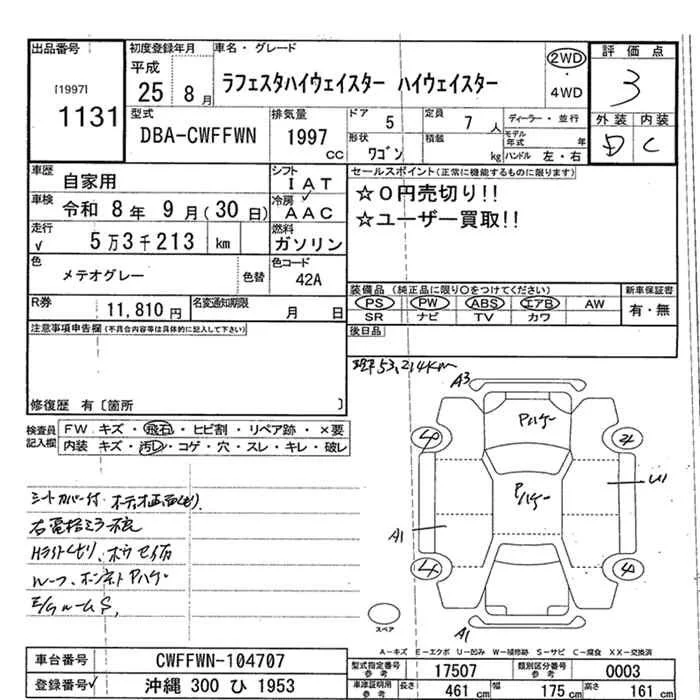 出品番号
[1997]
1131
初度登録年月
平成
25 8月
車名・グレード
ラフェスタハイウェイスター ハイウェイスター
2WD
・
4WD
評価点
3
外装 内装
D C
型式
DBA-CWFFWN
排気量
1997 cc
ドア 5
定員 7 人
形状 ワゴン
積載 kg
ディーラー・並行
モデル年式 年
ハンドル 左・右
車歴 自家用
シフト IAT
車検 令和 8年 9月(30日)
冷房 AAC
走行 √ 5万3千213 km
燃料 ガソリン
色 メテオグレー 色替
色コード 42A
R券 11,810円
名変通知期限 月 日
セールスポイント(正常に機能するものに限る)
☆0円売切り!!
☆ユーザー買取!!
装備品(純正品に限り○をつけてください)
新車保証書
PS PW ABS エアB AW
SR ナビ TV カワ
有・無
後日品
注意事項申告欄(不具合内容等は具体的に記入して下さい)
修復歴 有〔箇所 〕
検査員記入欄
FW キズ・飛石・ヒビ割・リペア跡・×要
内装 キズ・汚レ・コゲ・穴・スレ・キレ・破レ
53,214km
A3
Pハゲ
4 4
Pハゲ
U1
A1
4 4
A1
スペア
シートカバー付
右電格ミラー不良
ルーフ、ボンネットPハゲ
E/gルームS,
A-キズ E-エクボ U-凹み W-補修跡 S-サビ C-腐食 XX-交換済
車台番号 CWFFWN-104707
登録番号√ 沖縄 300 ひ 1953
型式指定番号 参考 17507
類別区分番号 参考 0003
車庫証明用 参考
長さ 461 cm
幅 175 cm
高さ 161 cm